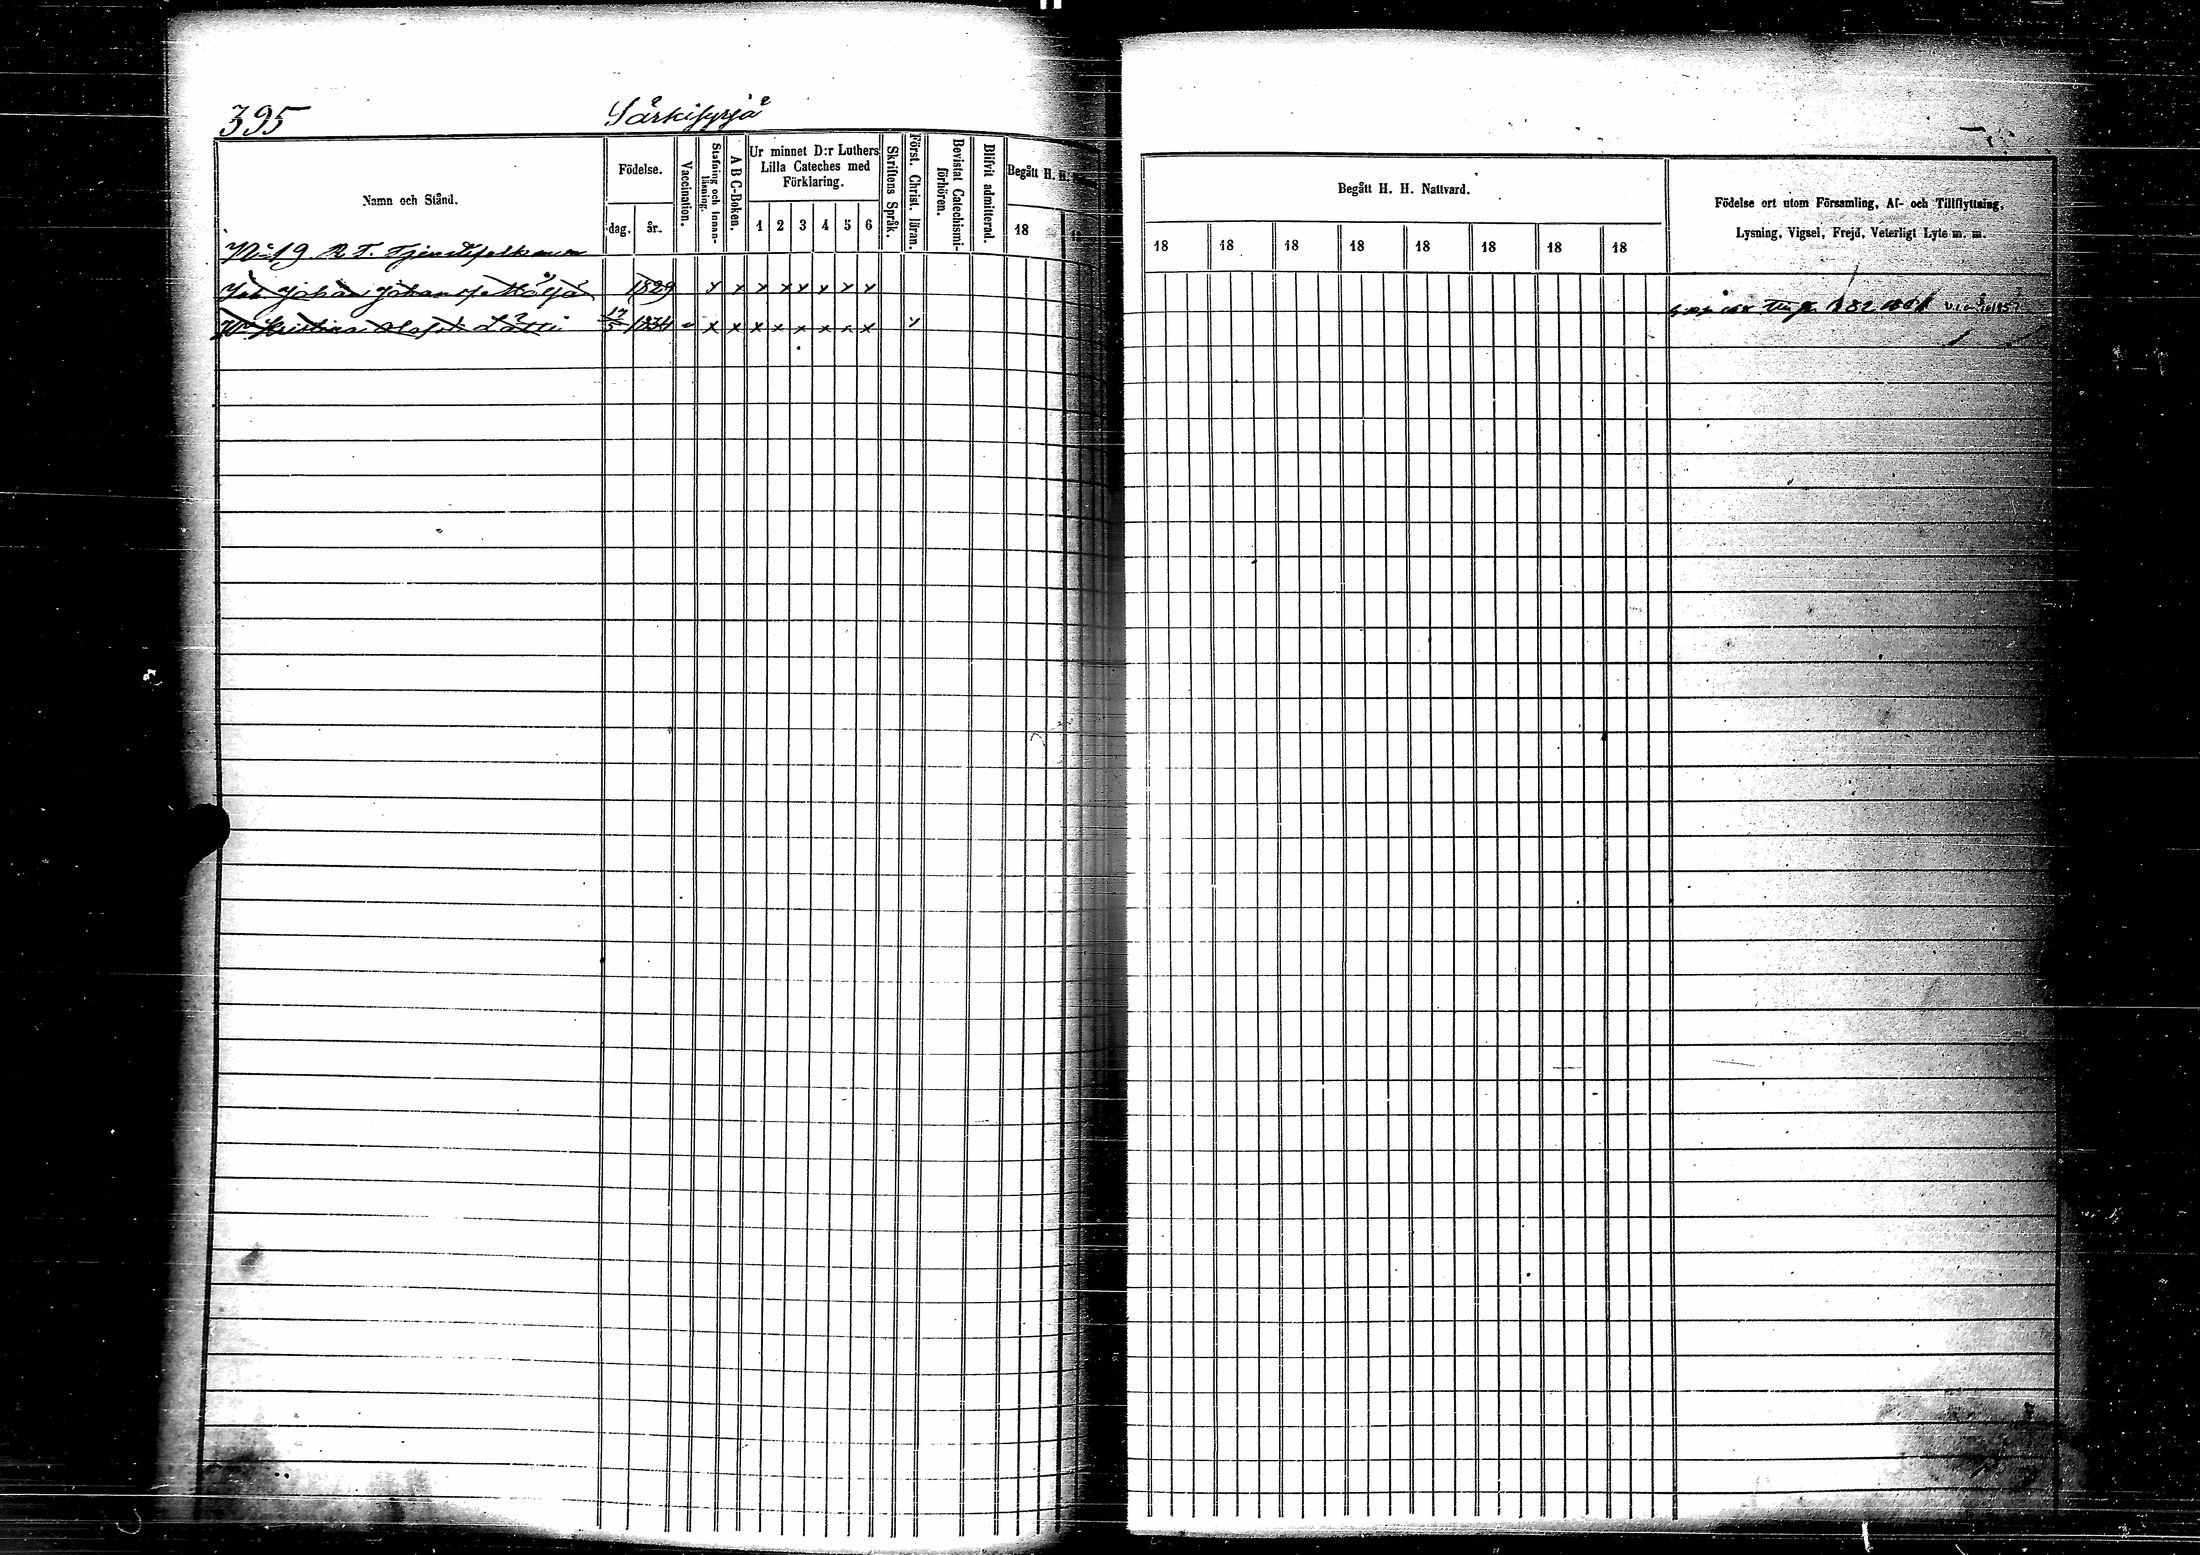 395
Särkisyrjä
Namn och Stånd.
Födelse.
dag.
år.
Vaccination.
Stafning och Innan-läsning.
A B C-Boken.
Ur minnet D:r Luthers
Lilla Cateches med
Förklaring.
1 2 3 4 5 6
Skriftens Språk.
Först. Christ. läran.
Bevistat Catechismi-förhören.
Blifvit admitterad.
Begått H. H.
18
Begått H. H. Nattvard.
18 18 18 18 18 18 18 18
Födelse ort utom Församling, Af- och Tillflyttning,
Lysning, Vigsel, Frejd, Veterligt Lyte m. m.
No 19 R. T. Tjenstefolk
Johan Johansson 1829 x x x x x x x x
Kristina Olofsd. Lätti 17/5 1834 x x x x x x x x